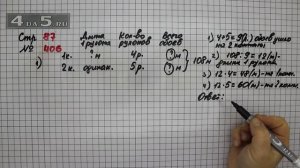 4DA5.RU
Стр 87
№ 406
Длина 1 рулона
Кол-во рулонов
Всего обоев
1)
1к. ? м 4 р. ? м
2к. одинак. 5 р. ? м
108 м
1) 4+5=9(р.) обоев ушло
на 2 комнаты
2) 108:9=12(м)
длина 1 рулона
3) 12·4=48(м)-на 1 комн.
4) 12·5=60(м)-на 2 комн.
Ответ: